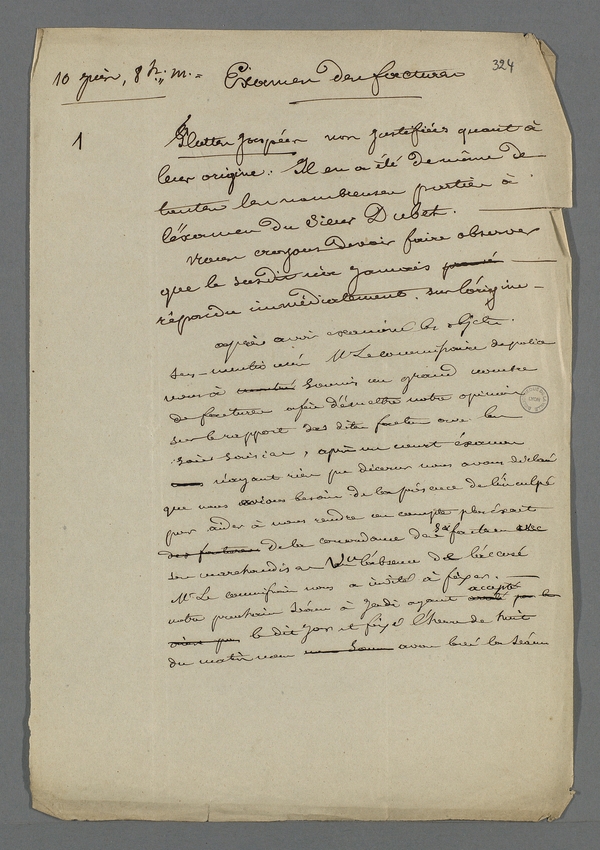 10 juin, 8 h. m. = Examen des factures 324
1
Flottes jaspées non justifiées quant à
leur origine. Il en a été de même de
toutes les nombreuses parties à
l'éxamen du Sieur Dubet.
nous croyons devoir faire observer
que le susdit n'a jamais
répondu immédiatement sur l'origine
après avoir examiné les objets
sus-mentionnés Mr. Le commissaire de police
nous à soumis un grand nombre
de factures afin d'émettre notre opinion
sur le rapport des dites factes avec les
soies saisies, après un court éxamen
n'ayant rien pu décerner nous avons déclaré
que nous avions besoin de la présence de l'inculpé
pour aider à nous rendre un compte plus éxact
des factures de la concordance de sa facture avec
ses marchandises Vu l'absence de l'accusé
Mr. Le commissaire nous a invité à fixer
notre prochaine séance à Jeudi ayant accepté
le dit jour et fixé l'heure de huit
du matin nous avons levé la séance